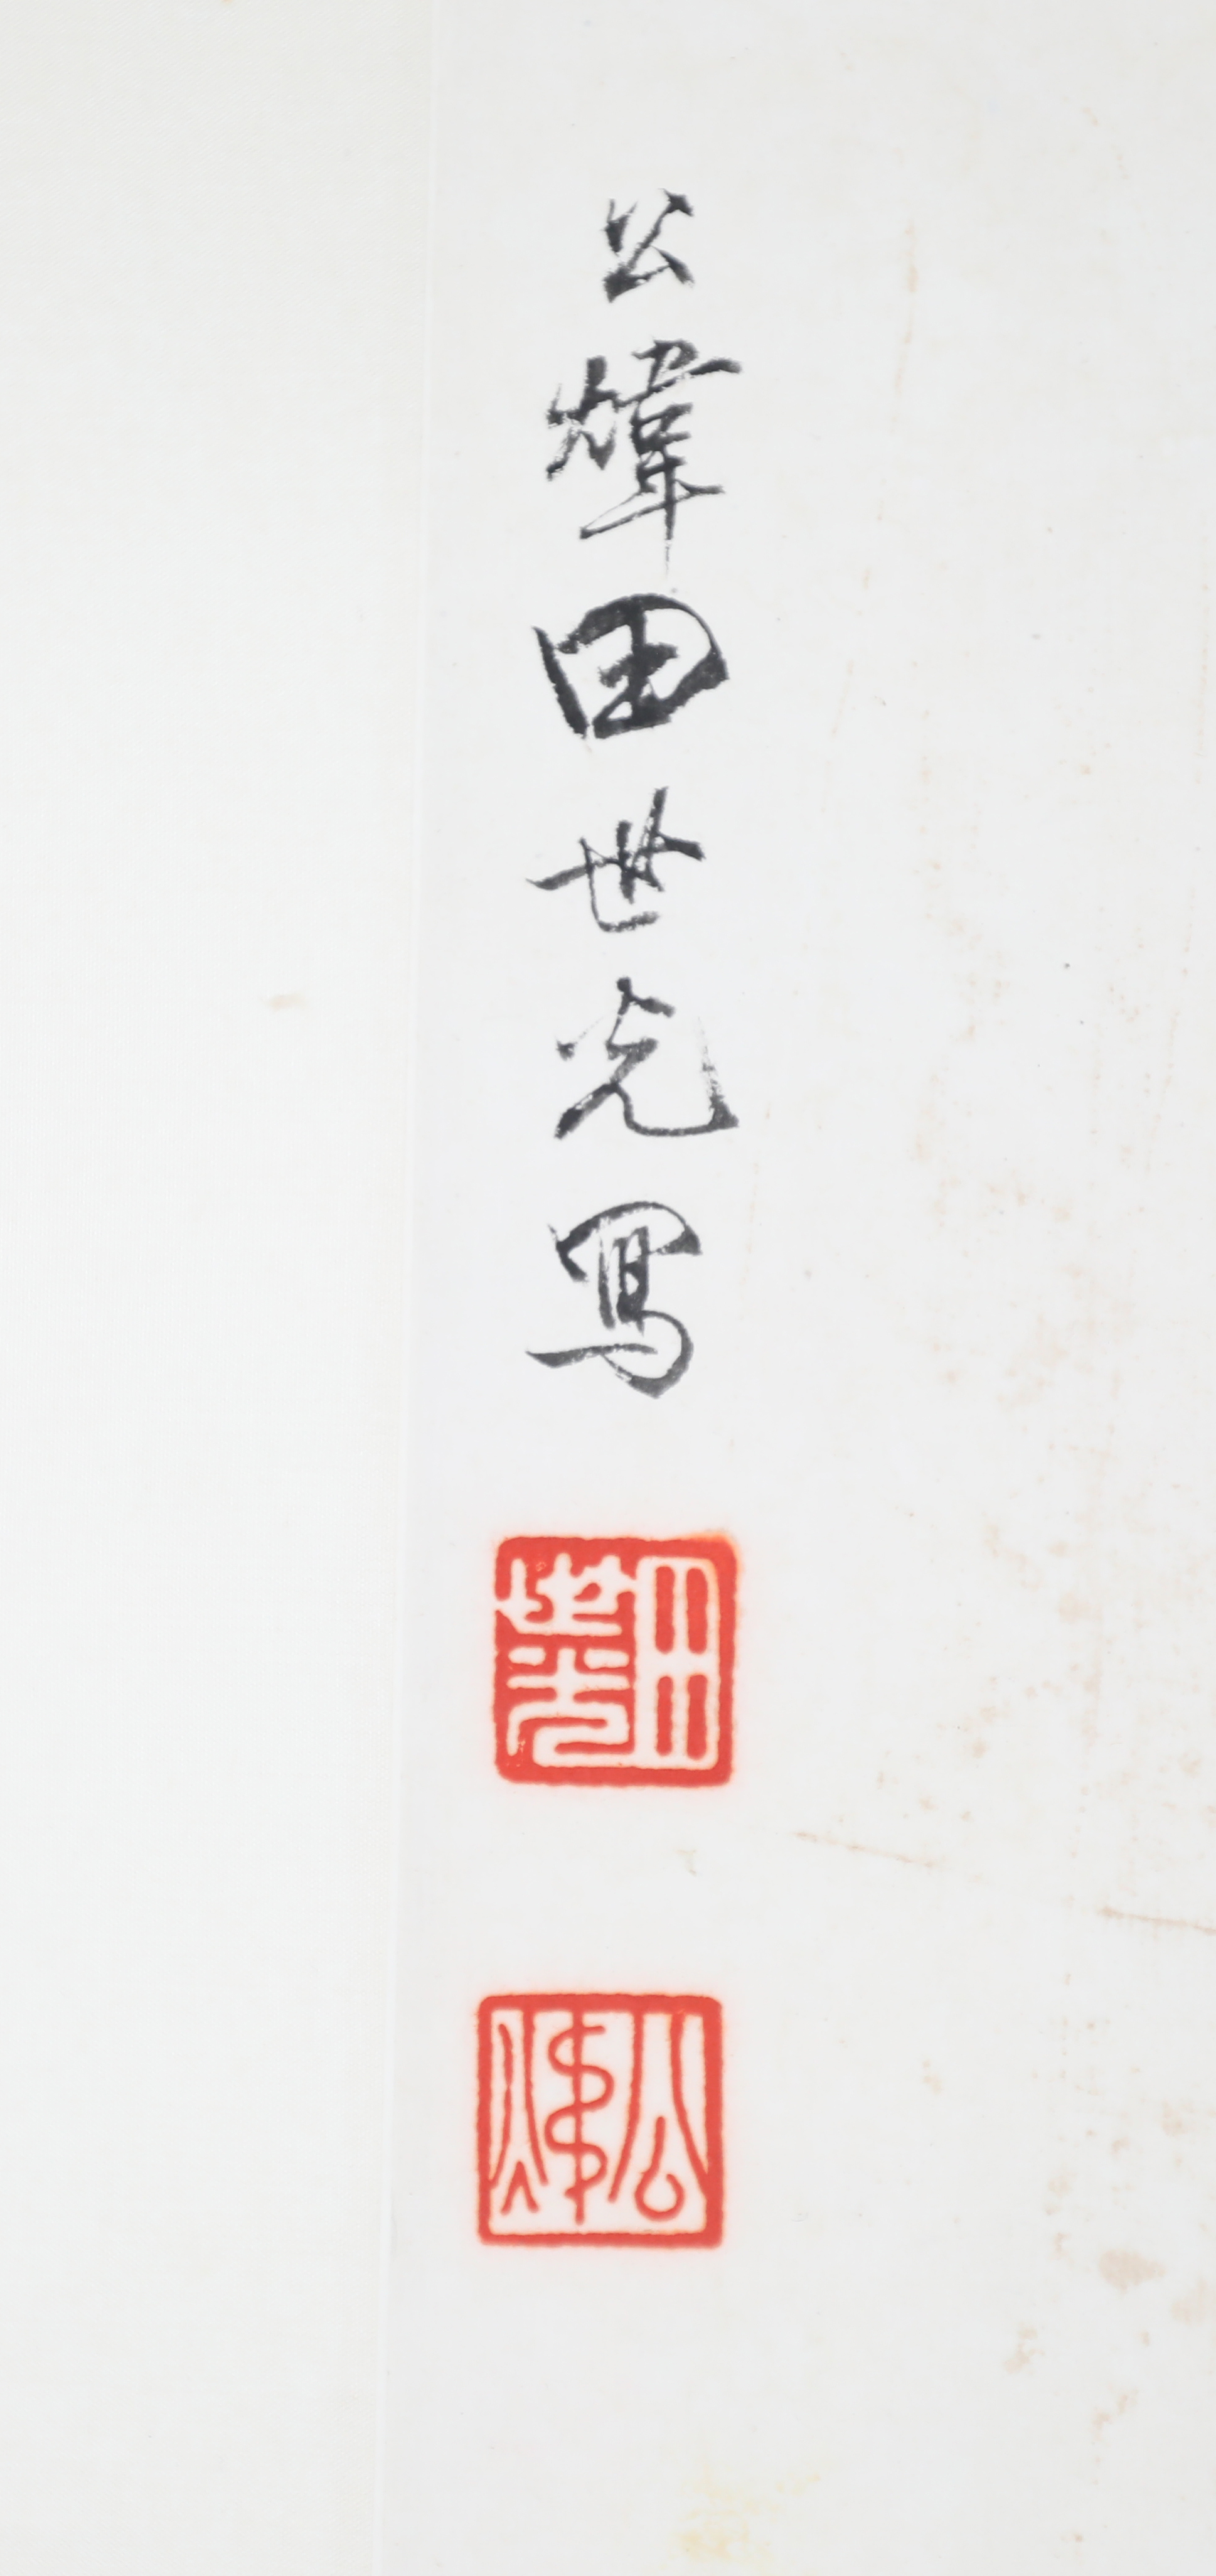 公煒田世光寫
田世光
公煒